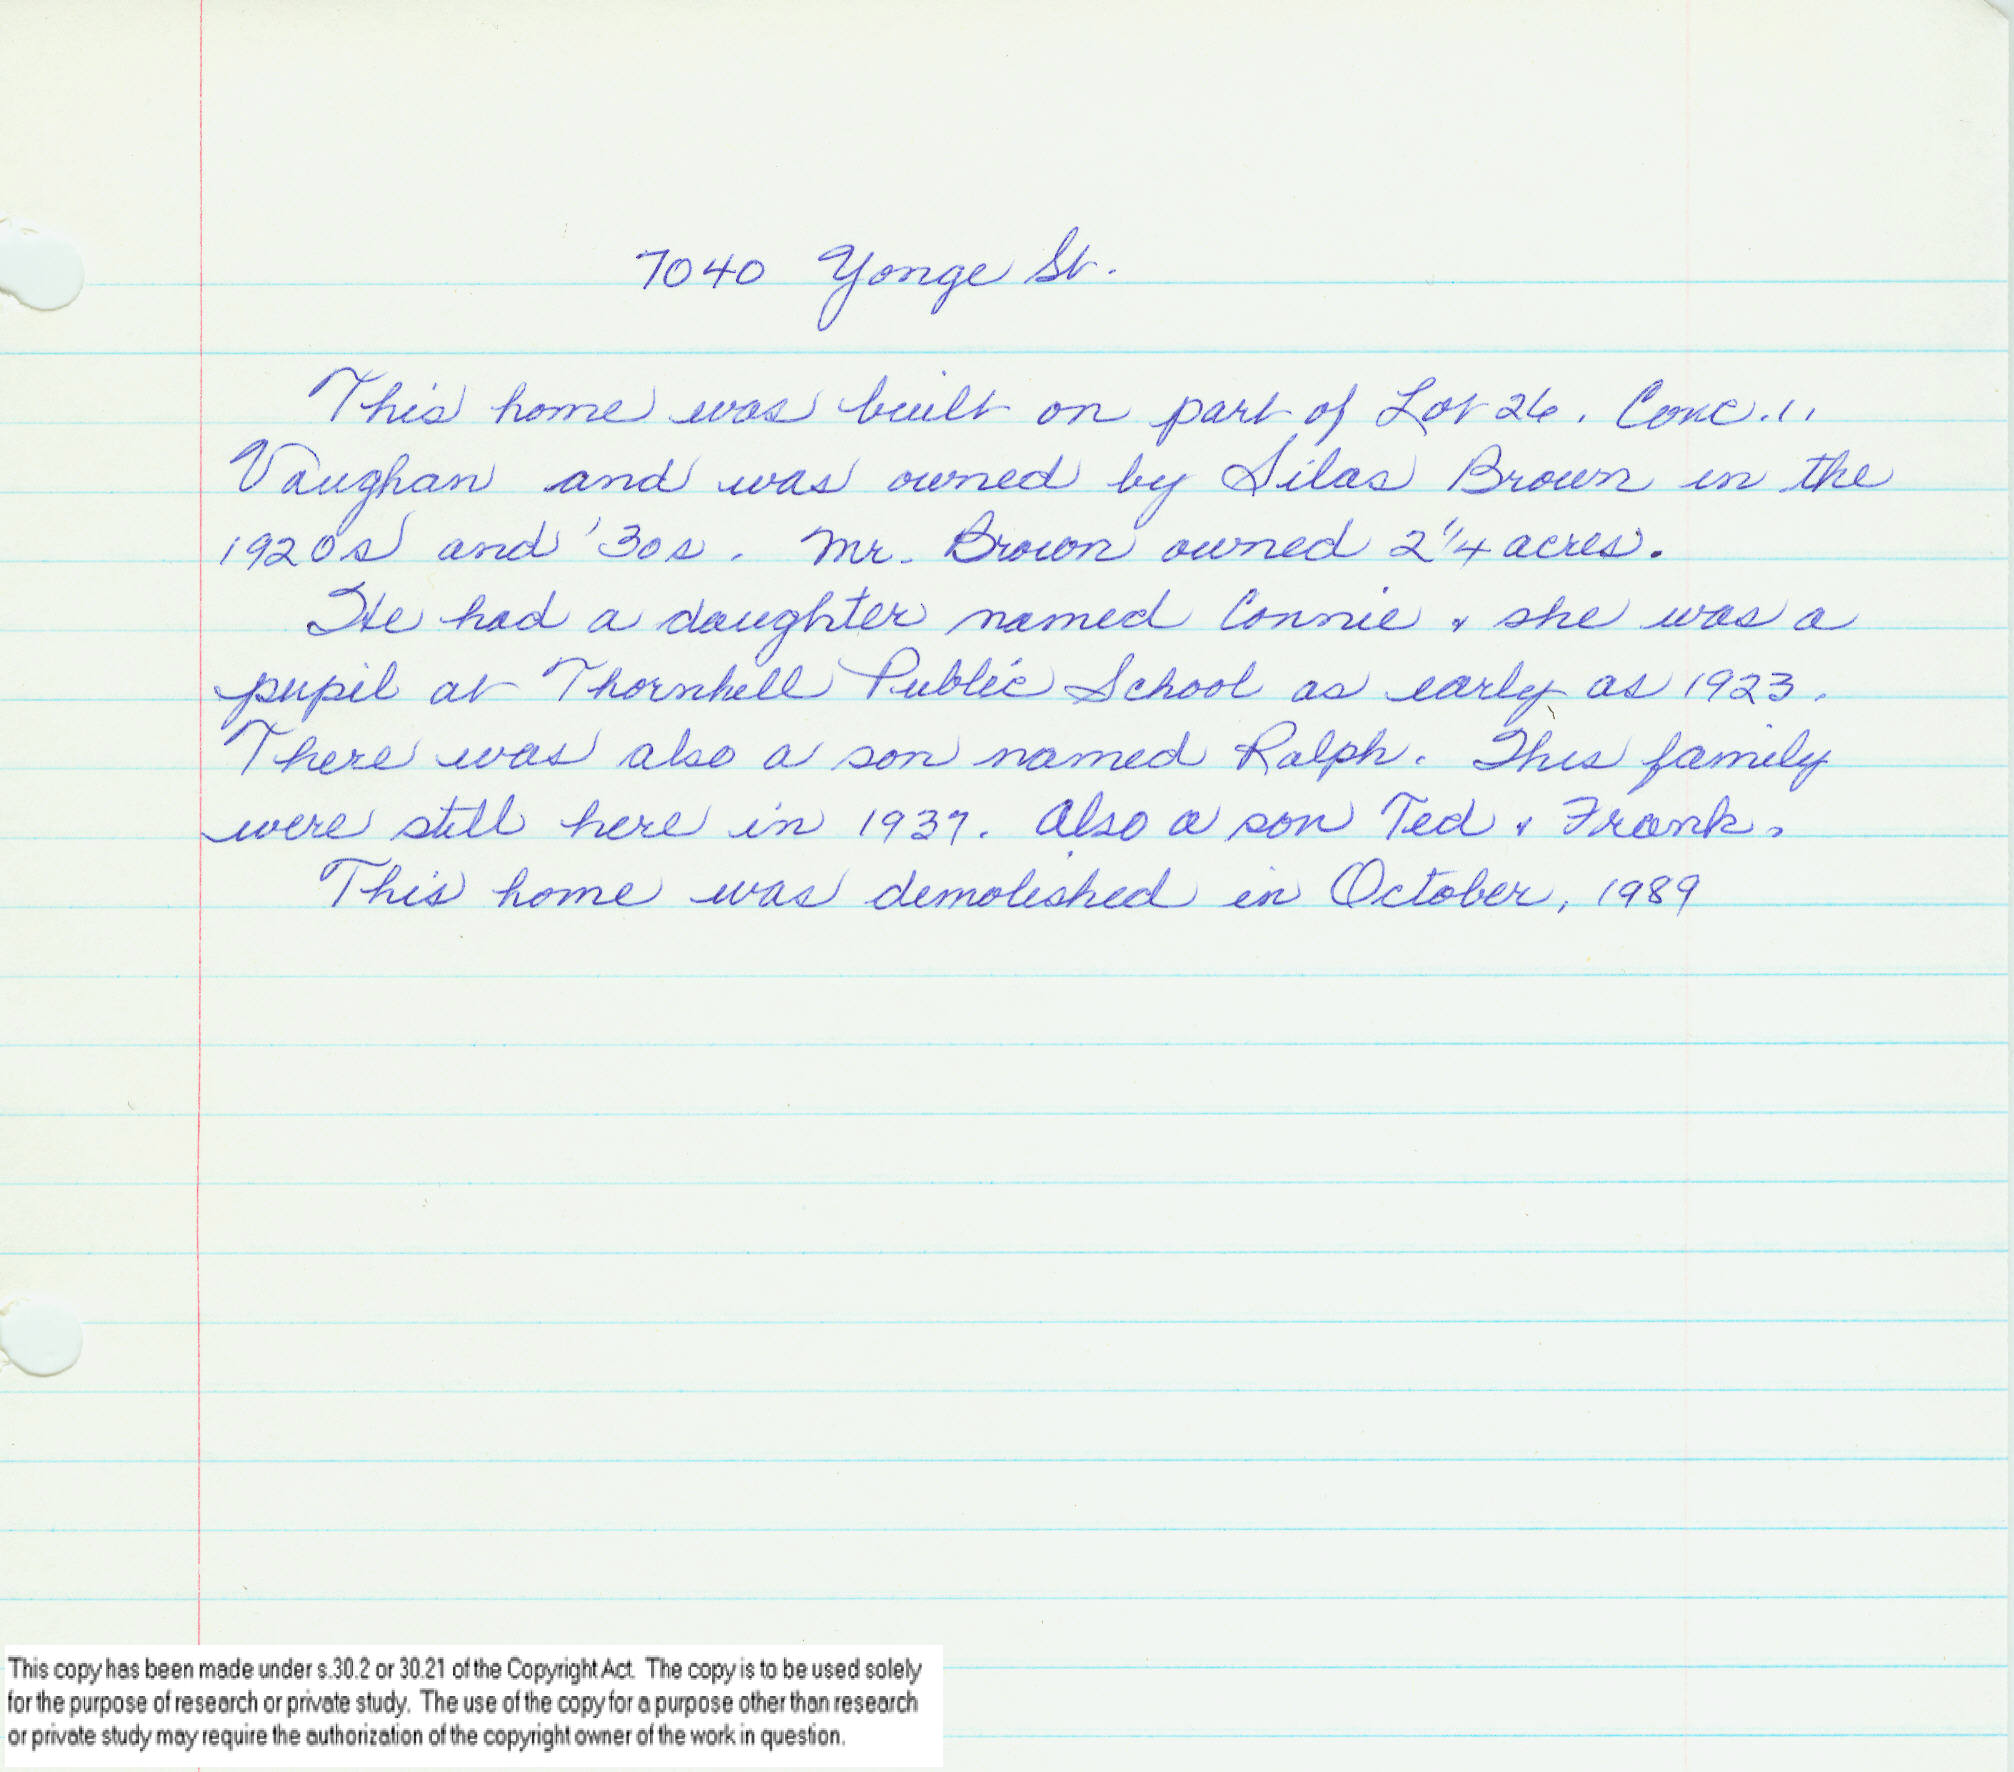 7040 Yonge St.
This home was built on part of Lot 26, Conc. 1,
Vaughan and was owned by Silas Brown in the
1920s and '30s. Mr. Brown owned 2 1/4 acres.
He had a daughter named Connie & she was a
pupil at Thornhill Public School as early as 1923.
There was also a son named Ralph. This family
were still here in 1937. Also a son Ted & Frank.
This home was demolished in October, 1989
This copy has been made under s.30.2 or 30.21 of the Copyright Act. The copy is to be used solely
for the purpose of research or private study. The use of the copy for a purpose other than research
or private study may require the authorization of the copyright owner of the work in question.